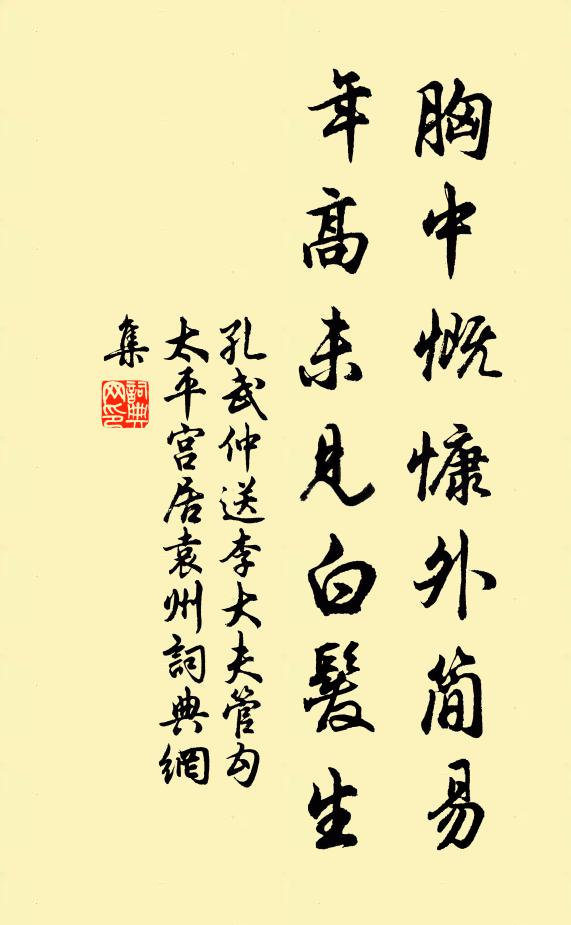 胸中慨慷外簡易
年高未見白髮生
孔武仲送李大夫管勾
太平宮居袁州詞典網
集
詞典網印